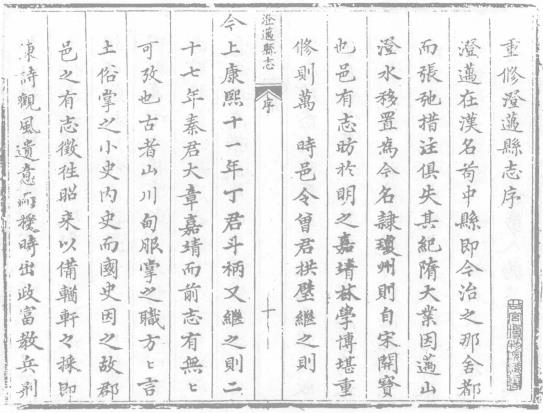 重修澄邁縣志序
澄邁在漢名苟中縣即今治之那舍都
而張弛措注俱失其紀隋大業因邁山
澄水移置為今名隷瓊州則自宋開寶
也邑有志昉於明之嘉靖林學博堪重
修則萬 時邑令曾君拱璧繼之則
澄邁縣志
序
十
今上康熙十一年丁君斗柄又繼之則二
十七年秦君大章嘉靖而前志有無ヒ
可攷也古者山川甸服掌之職方ヒ言
土俗掌之小史内史而國史因之故郡
邑之有志徵徃昭来以備輶軒々採即
陳詩觀風遺意而穫時出政富教兵刑